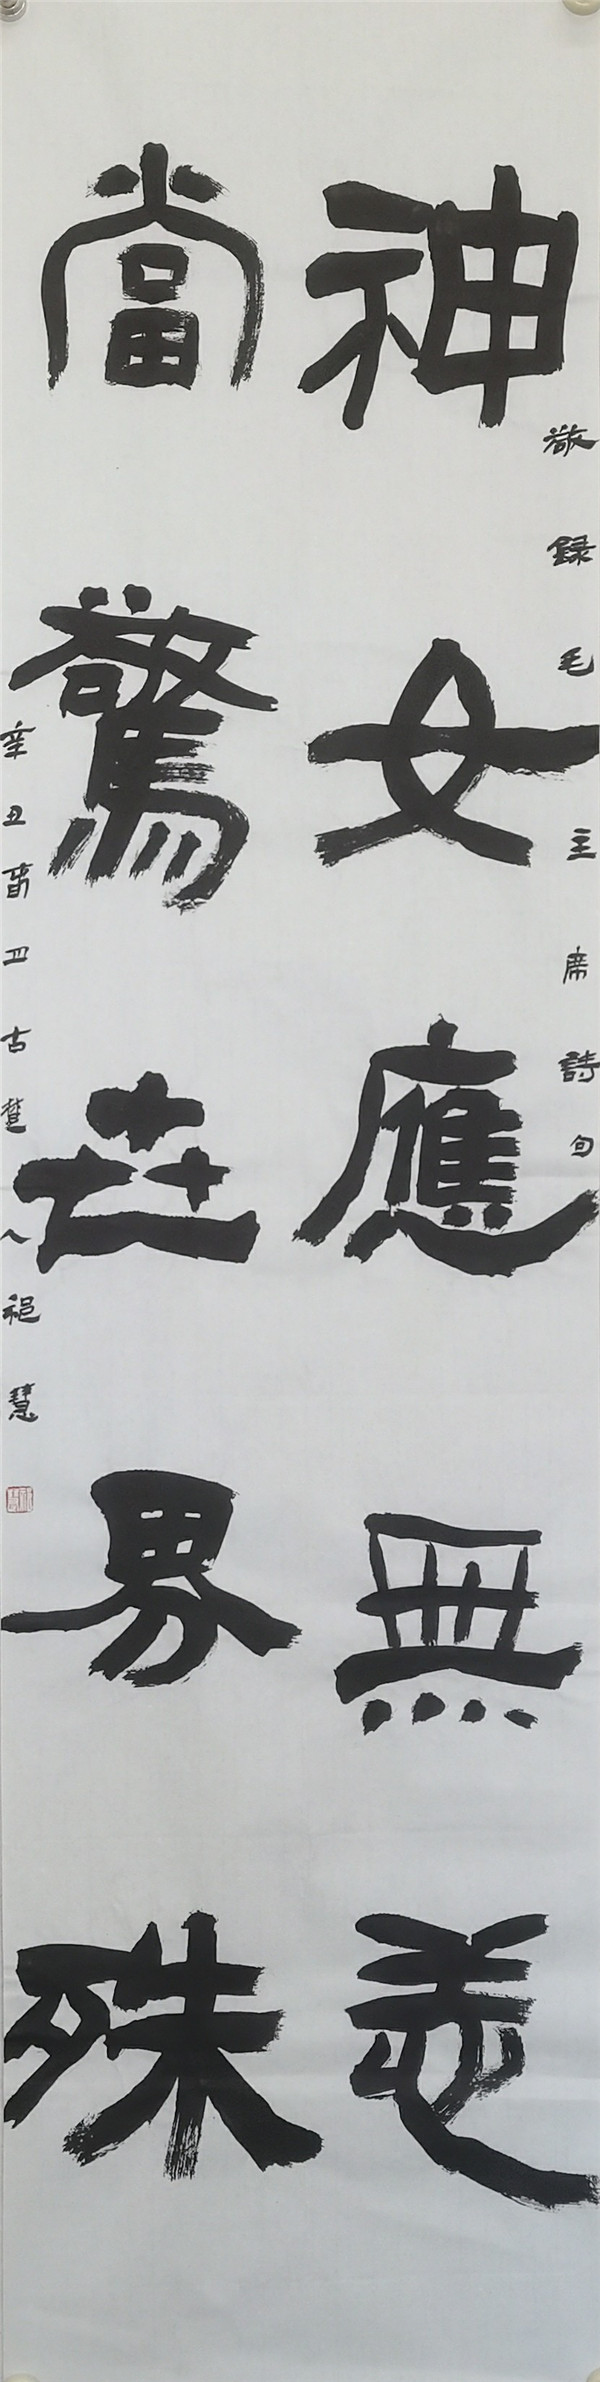 神女應無恙
當驚世界殊
敬録毛主席詩句
辛丑春四古楚人祀慧